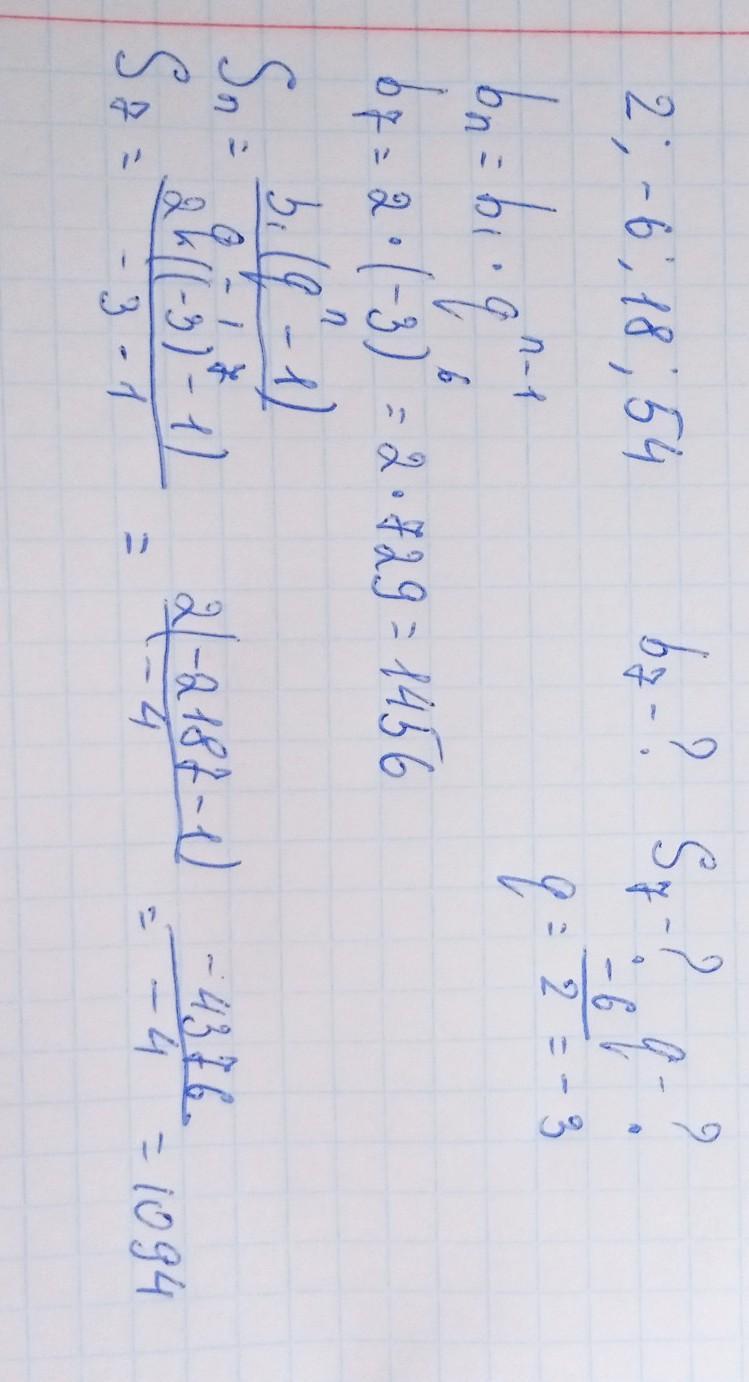 2; -6; 18; 54 b₇ - ? S₇ - ? q - ?
bₙ = b₁ · qⁿ⁻¹ q = -6/2 = -3
b₇ = 2 · (-3)⁶ = 2 · 729 = 1456
Sₙ = b₁(qⁿ - 1)/q - 1
S₇ = 2((-3)⁷ - 1)/-3 - 1 = 2(-2187 - 1)/-4 = -4376/-4 = 1094